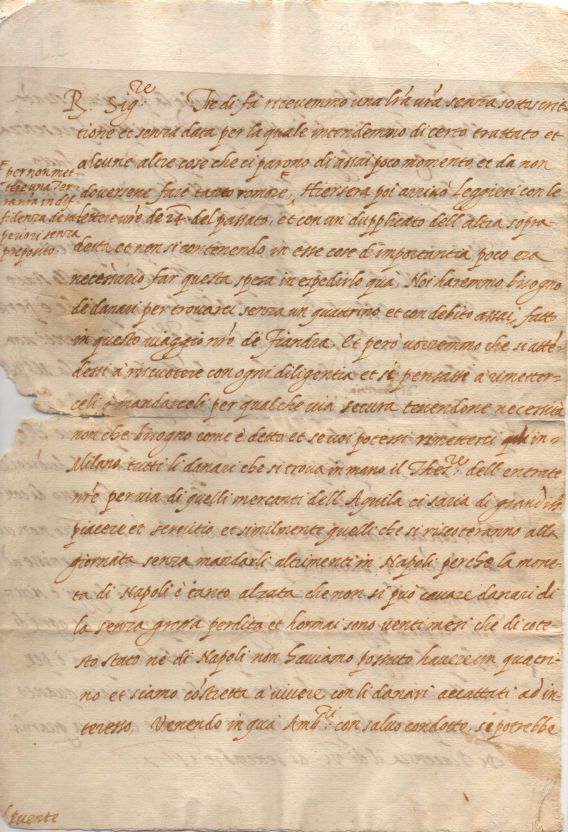 R. Sig.re Tre di fà ricevemmo una lr̃a vr̃a senza sottoscrit-
tione et senza data per la quale intendemmo di certo trattato et
alcune altre cose che ci parono di assai poco momento et da non
doversene fare tanto romore, Hiersera poi arrivò Leggieri con le
lettere vr̃e de 24 del passato, et con un dupplicato dell altra sopra
detta et non si contenendo in esse cose di importantia poco era
necessario far questa spesa in espedirlo quà, Noi haremmo bisogno
de danari per trovarci senza un quatrino et con debito assai, fatto
in questo viaggio nr̃o de Fiandra, Et però vorremmo che si atte-
dessi à riscuotere con ogni diligentia et si pensassi à rimetter-
celi ò mandarceli per qualche via secura tenendone necessità
non che bisogno come è detto et se voi potessi rimetterci in
Milano tutti li danari che si trova in mano il Thes.re dell entrate
nr̃e per via di quelli mercanti dell Aquila ci saria di grand.mo
piacere et servitio et similmente quelli che si riscoteranno alla
giornata senza mandarli altrimenti in Napoli perche la mone-
ta di Napoli è tanto alzata che non si può cavare danari di
la senza grossa perdita et hormai sono venti mesi che di cote-
sto stato nè di Napoli non haviamo possuto havere un quatri-
no et siamo costretta à vivere con li danari accattati ad in-
teresse. Venendo in qua Amb.ri con salvo condotto, si potrebbe
per non met
tere una ter
ra nra in dif
fidenza de su
periori senza
proposito